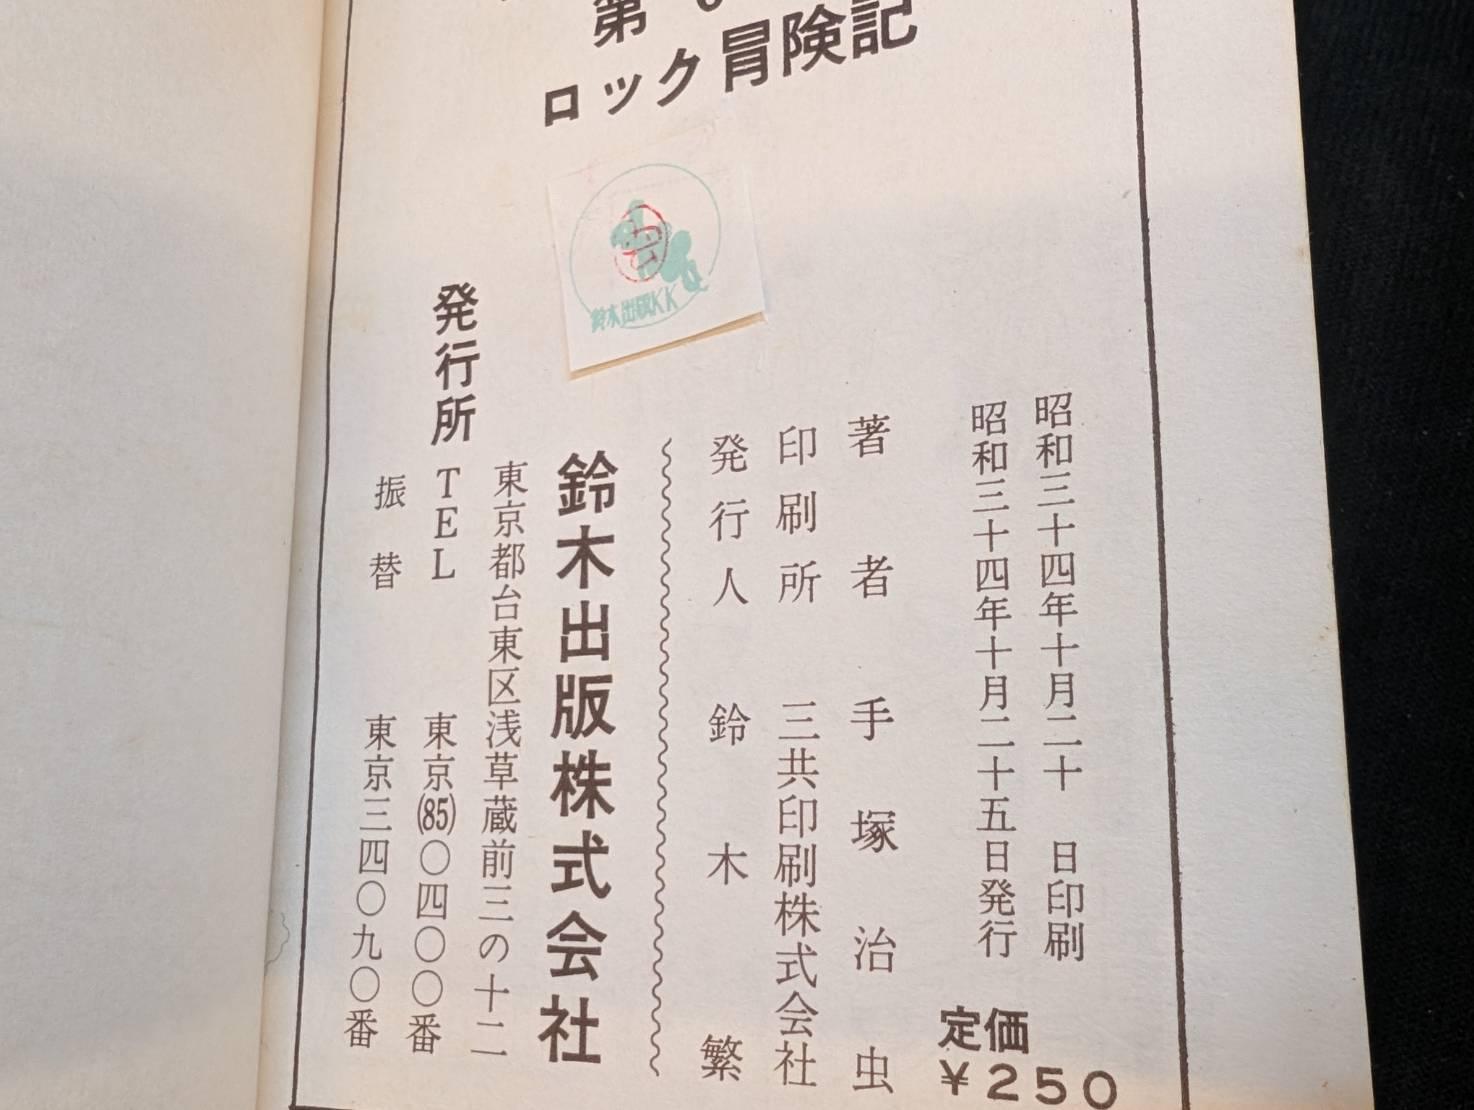 第
ロック冒険記
鈴木出版KK
昭和三十四年十月二十 日印刷
昭和三十四年十月二十五日発行
定価
¥250
著者 手塚治虫
印刷所 三共印刷株式会社
発行人 鈴木繁
発行所
鈴木出版株式会社
東京都台東区浅草蔵前三の十二
TEL 東京(85)〇四〇〇番
振替 東京三四〇九〇番